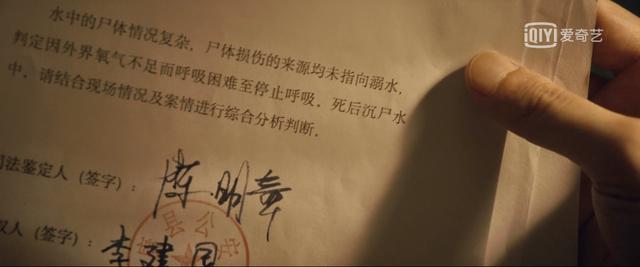 iQIYI 爱奇艺
水中的尸体情况复杂，尸体损伤的来源均未指向溺水，
判定因外界氧气不足而呼吸困难至停止呼吸．死后沉尸水
中．请结合现场情况及案情进行综合分析判断．
司法鉴定人（签字）：陈明章
权人（签字）：李建国